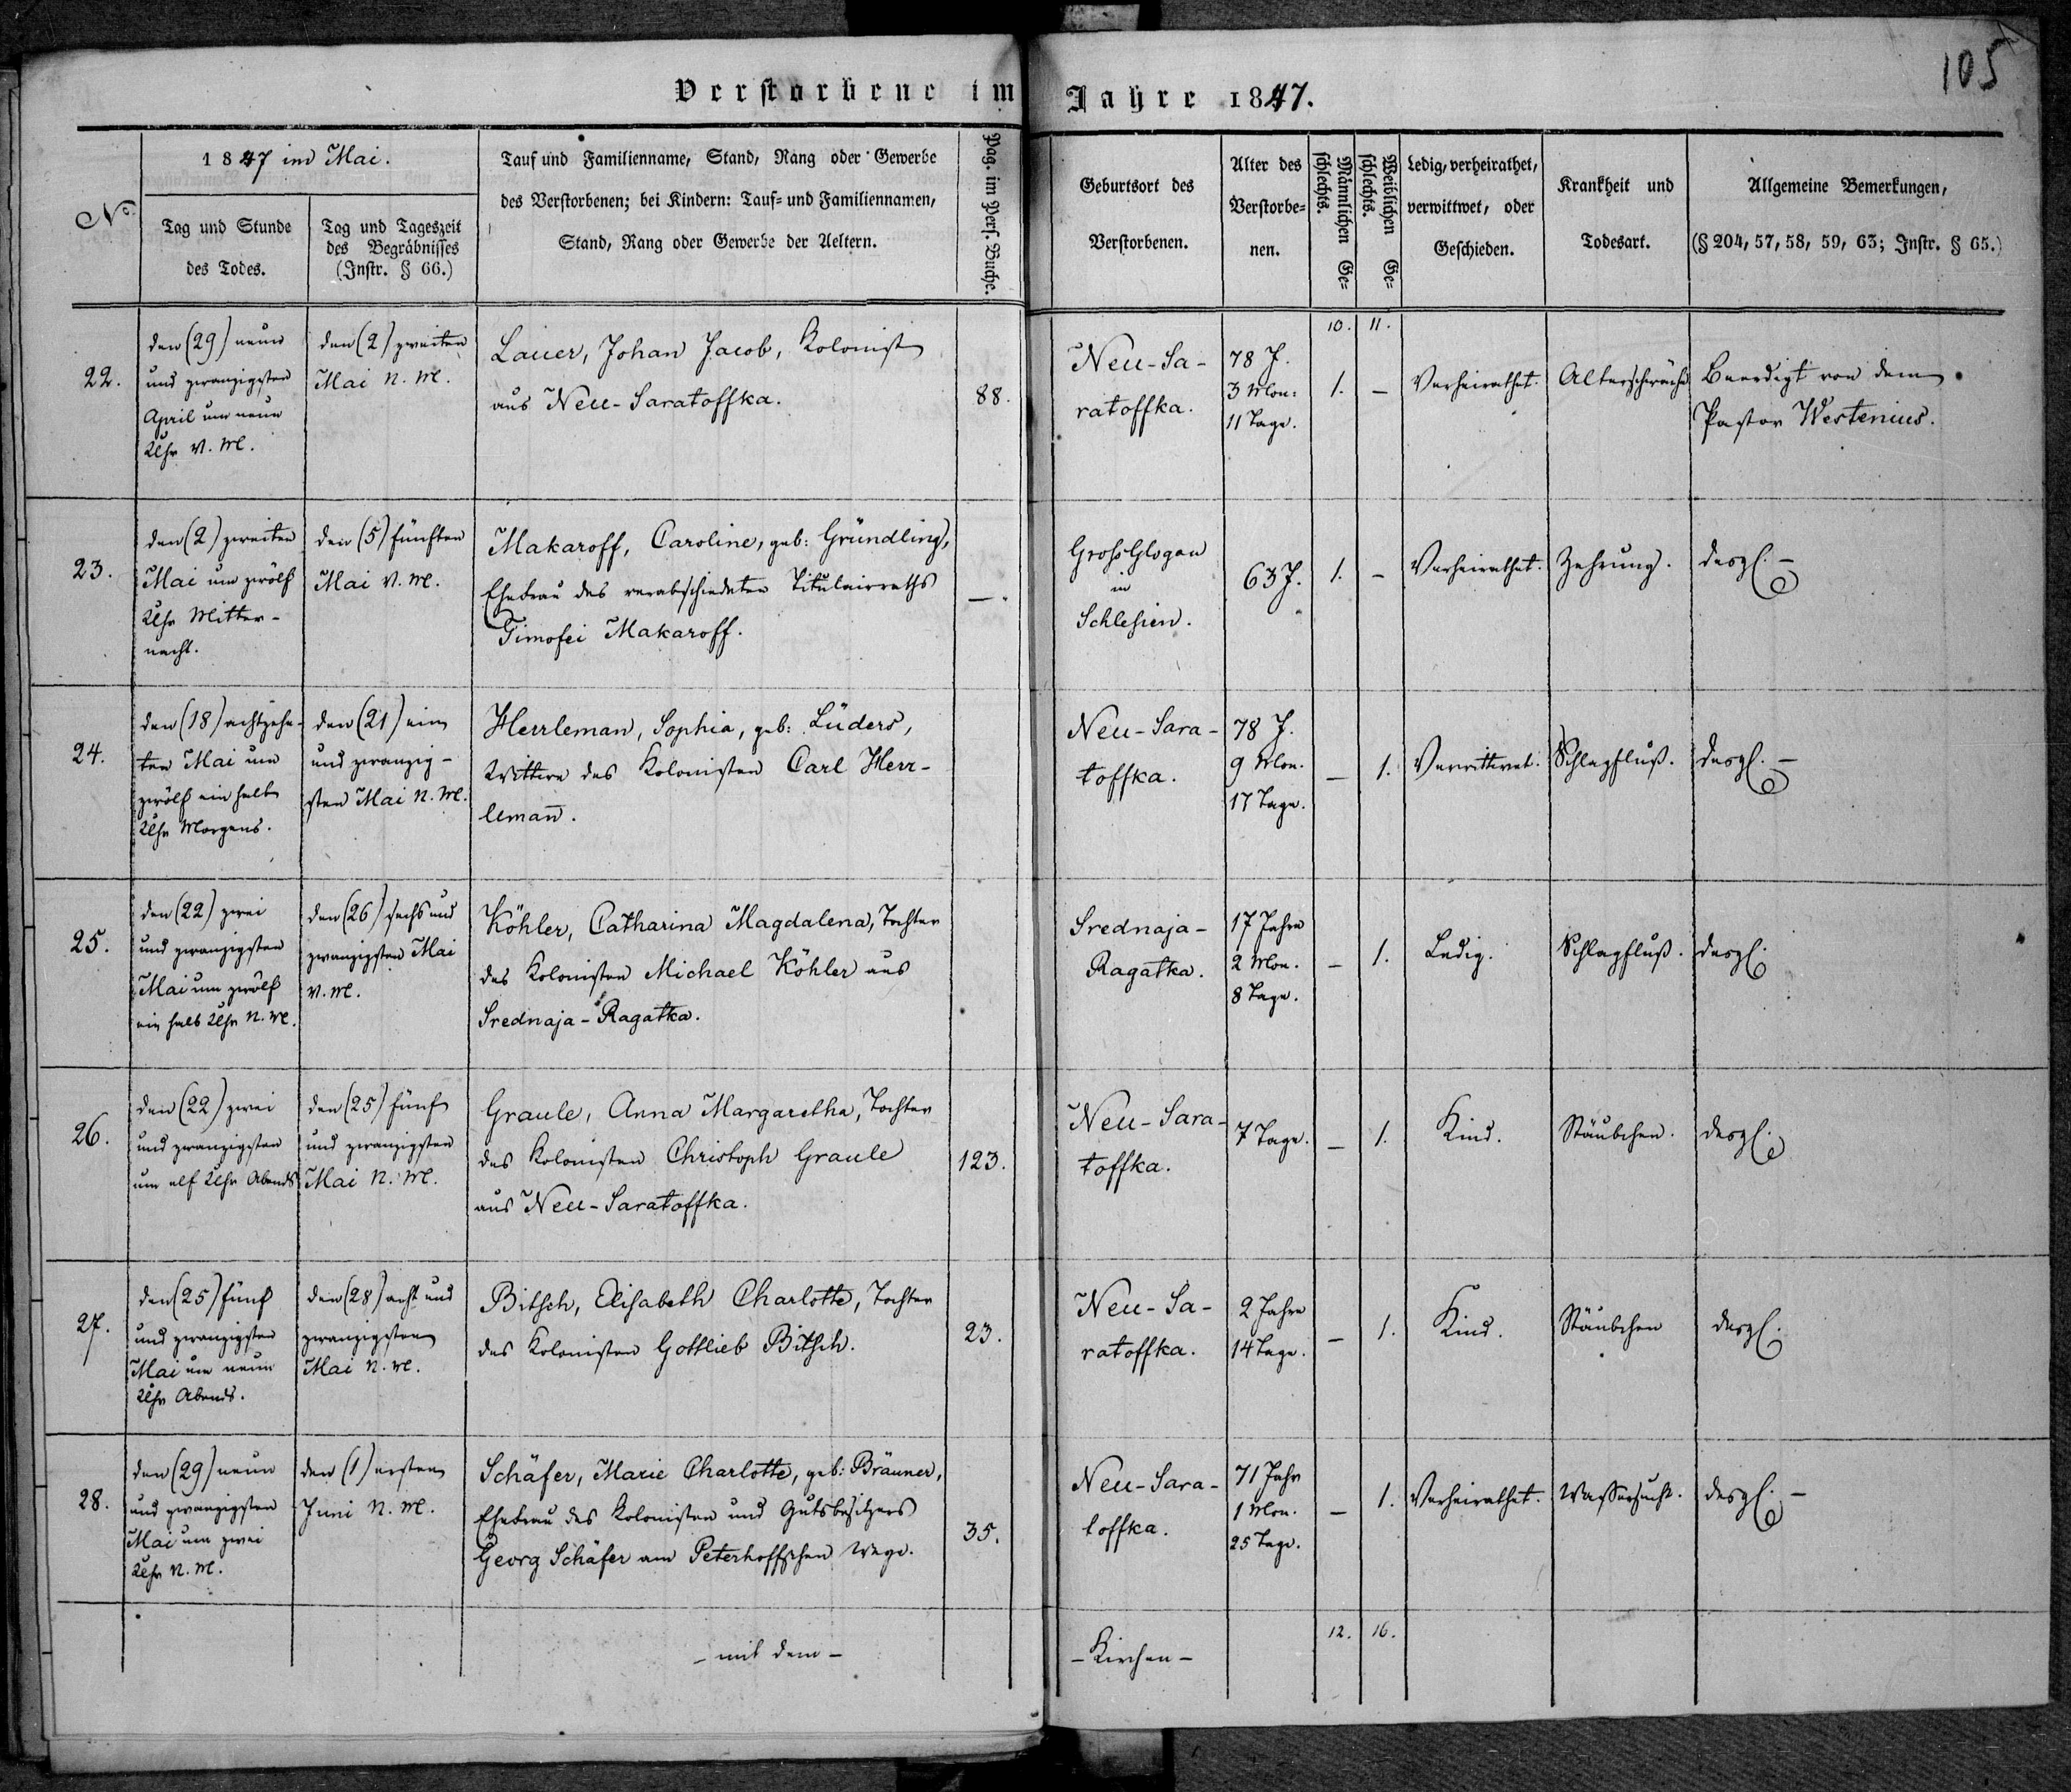 Verstorbene im Jahre 1847.
105
No.
1847 im Mai.
Tag und Stunde
des Todes.
Tag und Tageszeit
des Begräbnisses
(Instr. § 66.)
Tauf und Familienname, Stand, Rang oder Gewerbe
des Verstorbenen; bei Kindern: Tauf= und Familiennamen,
Stand, Rang oder Gewerbe der Aeltern.
Pag. im Pers. Buche.
Geburtsort des
Verstorbenen.
Alter des
Verstorbe=
nen.
Männlichen Ge=
schlechts.
Weiblichen Ge=
schlechts.
Ledig, verheirathet,
verwittwet, oder
Geschieden.
Krankheit und
Todesart.
Allgemeine Bemerkungen,
(§ 204, 57, 58, 59, 63; Instr. § 65.)
10. 11.
22.
den (29) neun
und zwanzigsten
April um neun
Uhr V. M.
den (2) zweiten
Mai N. M.
Lauer, Johan Jacob, Kolonist
aus Neu-Saratoffka.
88.
Neu-Sa-
ratoffka.
78 J.
3 Mon:
11 Tage.
1. –
Verheirathet.
Altersschwäche
Beerdigt von dem
Pastor Westenius.
23.
den (2) zweiten
Mai um zwölf
Uhr Mitter-
nacht.
den (5) fünften
Mai V. M.
Makaroff, Caroline, geb: Gründling,
Ehefrau des verabschiedeten Titulairraths
Timofei Makaroff.
–.
Gross Glogau
in
Schlesien.
63 J.
1. –
Verheirathet.
Zehrung.
desgl. –
24.
den (18) achtzehn-
ten Mai um
zwölf ein halb
Uhr Morgens.
den (21) ein
und zwanzig-
sten Mai N. M.
Herrleman, Sophia, geb: Lüders,
Wittwe des Kolonisten Carl Herr-
leman̄.
Neu-Sara-
toffka.
78 J.
9 Mon.
17 Tage.
– 1.
Verwittwet.
Schlagfluß.
desgl. –
25.
den (22) zwei
und zwanzigsten
Mai um zwölf
ein halb Uhr N. M.
den (26) sechs und
zwanzigsten Mai
V. M.
Köhler, Catharina Magdalena, Tochter
des Kolonisten Michael Köhler aus
Srednaja-Ragatka.
Srednaja-
Ragatka.
17 Jahre
2 Mon.
8 Tage.
– 1.
Ledig.
Schlagfluß.
desgl.
26.
den (22) zwei
und zwanzigsten
um elf Uhr Abends
den (25) fünf
und zwanzigsten
Mai N. M.
Graule, Anna Margaretha, Tochter
des Kolonisten Christoph Graule
aus Neu-Saratoffka.
123.
Neu-Sara-
toffka.
7 Tage.
– 1.
Kind.
Stäubchen.
desgl.
27.
den (25) fünf
und zwanzigsten
Mai um neun
Uhr Abends.
den (28) acht und
zwanzigsten
Mai N. M.
Bitsch, Elisabeth Charlotte, Tochter
des Kolonisten Gottlieb Bitsch.
23.
Neu-Sa-
ratoffka.
2 Jahre
14 Tage.
– 1.
Kind.
Stäubchen
desgl.
28.
den (29) neun
und zwanzigsten
Mai um zwei
Uhr N. M.
den (1) ersten
Juni N. M.
Schäfer, Marie Charlotte, geb: Bräuner,
Ehefrau des Kolonisten und Gutsbesitzers
Georg Schäfer am Peterhoffschen Wege.
35.
Neu-Sara-
toffka.
71 Jahr
1 Mon.
25 Tage.
– 1.
Verheirathet.
Wassersucht.
desgl. –
– mit dem –
– Kirchen –
12. 16.